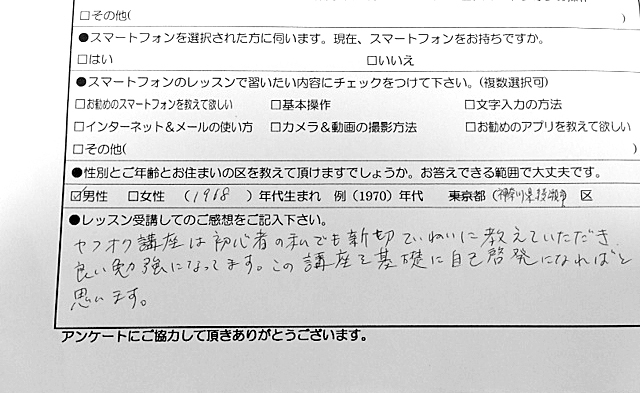 □その他( )
●スマートフォンを選択された方に伺います。現在、スマートフォンをお持ちですか。
□はい □いいえ
●スマートフォンのレッスンで習いたい内容にチェックをつけて下さい。(複数選択可)
□お勧めのスマートフォンを教えて欲しい □基本操作 □文字入力の方法
□インターネット＆メールの使い方 □カメラ＆動画の撮影方法 □お勧めのアプリを教えて欲しい
□その他( )
●性別とご年齢とお住まいの区を教えて頂けますでしょうか。お答えできる範囲で大丈夫です。
☑男性 □女性 (1968 )年代生まれ 例(1970)年代 東京都(神奈川県 区
●レッスン受講してのご感想をご記入下さい。
ヤフオク講座は初心者の私でも親切ていねいに教えていただき
良い勉強になってます。この講座を基礎に自己啓発になればと
思います。
アンケートにご協力して頂きありがとうございます。